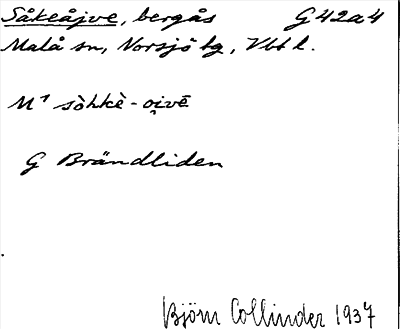 Såkeåjve, bergås G42a4
Malå sn, Norsjö tg, Vbt l.
M¹ sòhkè-oi̭vē
G Brändliden
Björn Collinder 1937